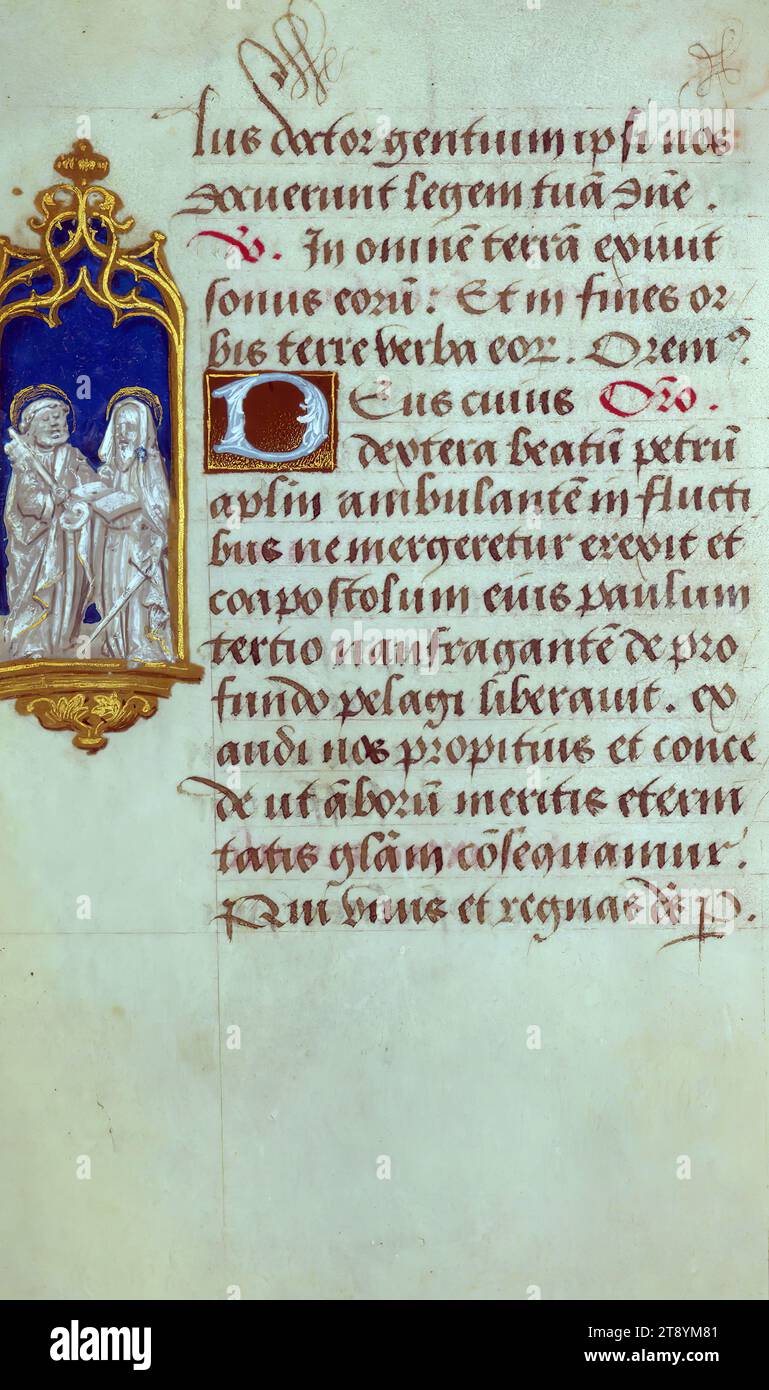 lus doctor gentium ipsi nos
docuerunt legem tuā dn̄e .
V. In omnē terrā exivit
sonus eorū : Et in fines or
bis terre verba eor . Orem9 .
DEus cuius Oro .
dextera beatū petrū
aplm ambulantē in flucti
bus ne mergeretur erexit et
coapostolum eius paulum
tertio naufragantē de pro
fundo pelagi liberavit . ex
audi nos propitius et conce
de ut āborū meritis eterni
tatis glām cōsequamur .
Qui vivis et regnas ds P .
alamy
alamy
Image ID: 2T8YM81
www.alamy.com